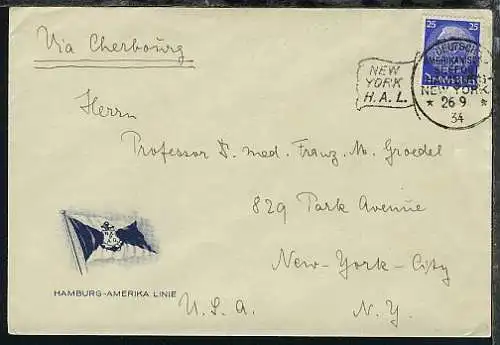 Via Cherbourg
25 25
DEUTSCH
AMERIKANISCHE
SEEPOST
HAMBURG-
NEW YORK.
* 26·9 *
34
NEW
YORK
H.A.L.
Herrn
Professor D. med. Franz. M. Groedel
829 Park Avenue
New-York-City
U.S.A. N.Y.
HAMBURG-AMERIKA LINIE